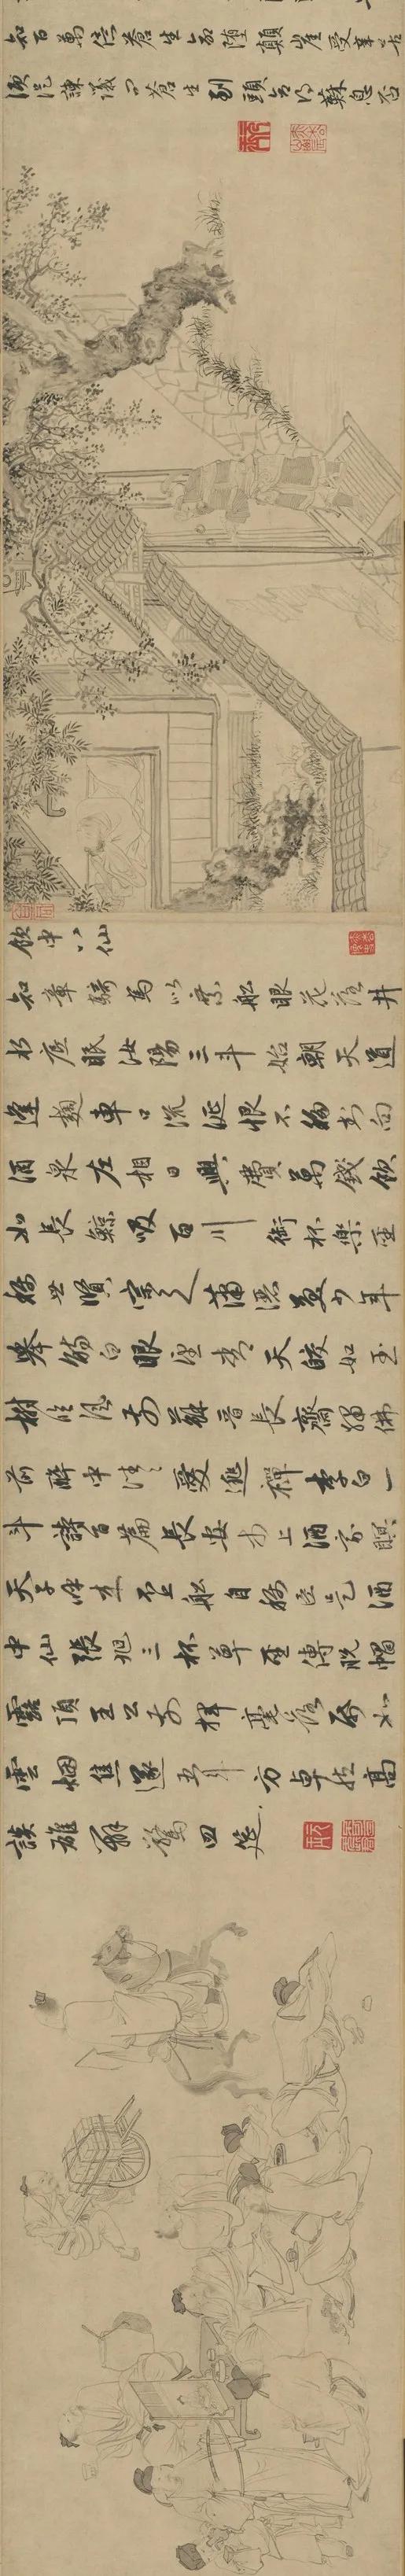 知百萬億蒼生命墮顛崖受辛苦
便從諫議問蒼生到頭合得蘇息否
飲中八仙
知章騎馬似乘船眼花落井
水底眠汝陽三斗始朝天道
逢麴車口流涎恨不移封向
酒泉左相日興費萬錢飲
如長鯨吸百川銜杯樂聖
稱世賢宗之瀟灑美少年
舉觴白眼望青天皎如玉
樹臨風前蘇晉長齋繡佛
前醉中往〻愛逃禪李白一
斗詩百篇長安市上酒家眠
天子呼來不上船自稱臣是酒
中仙張旭三杯草聖傳脫帽
露頂王公前揮毫落紙如
雲烟焦遂五斗方卓然高
談雄辯驚四筵